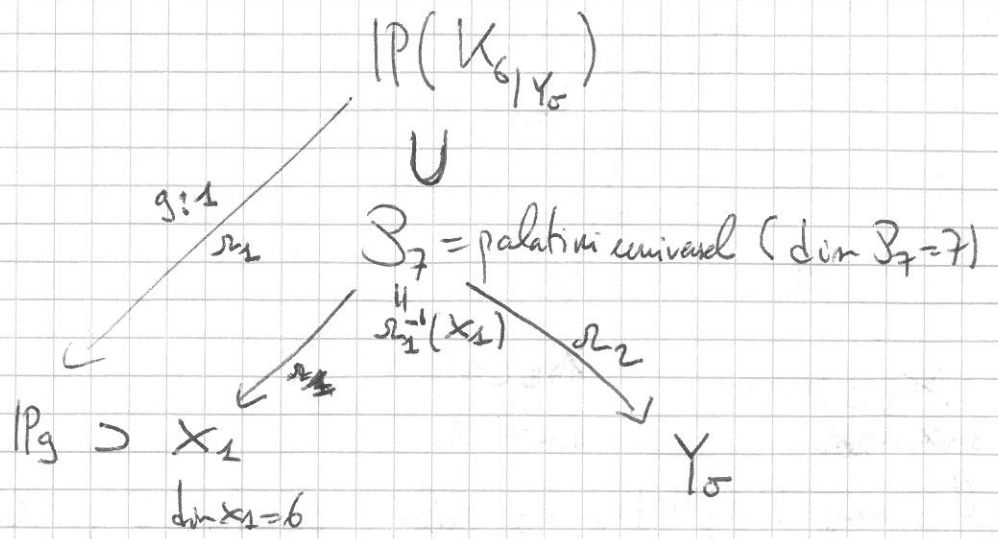 ℙ(K₆|Yσ)
∪
9:1
r₁
B₇ = palatini universel (dim B₇=7)
||
r₁⁻¹(X₁)
r₂
ℙ9 ⊃ X₁
Yσ
dim X₁=6